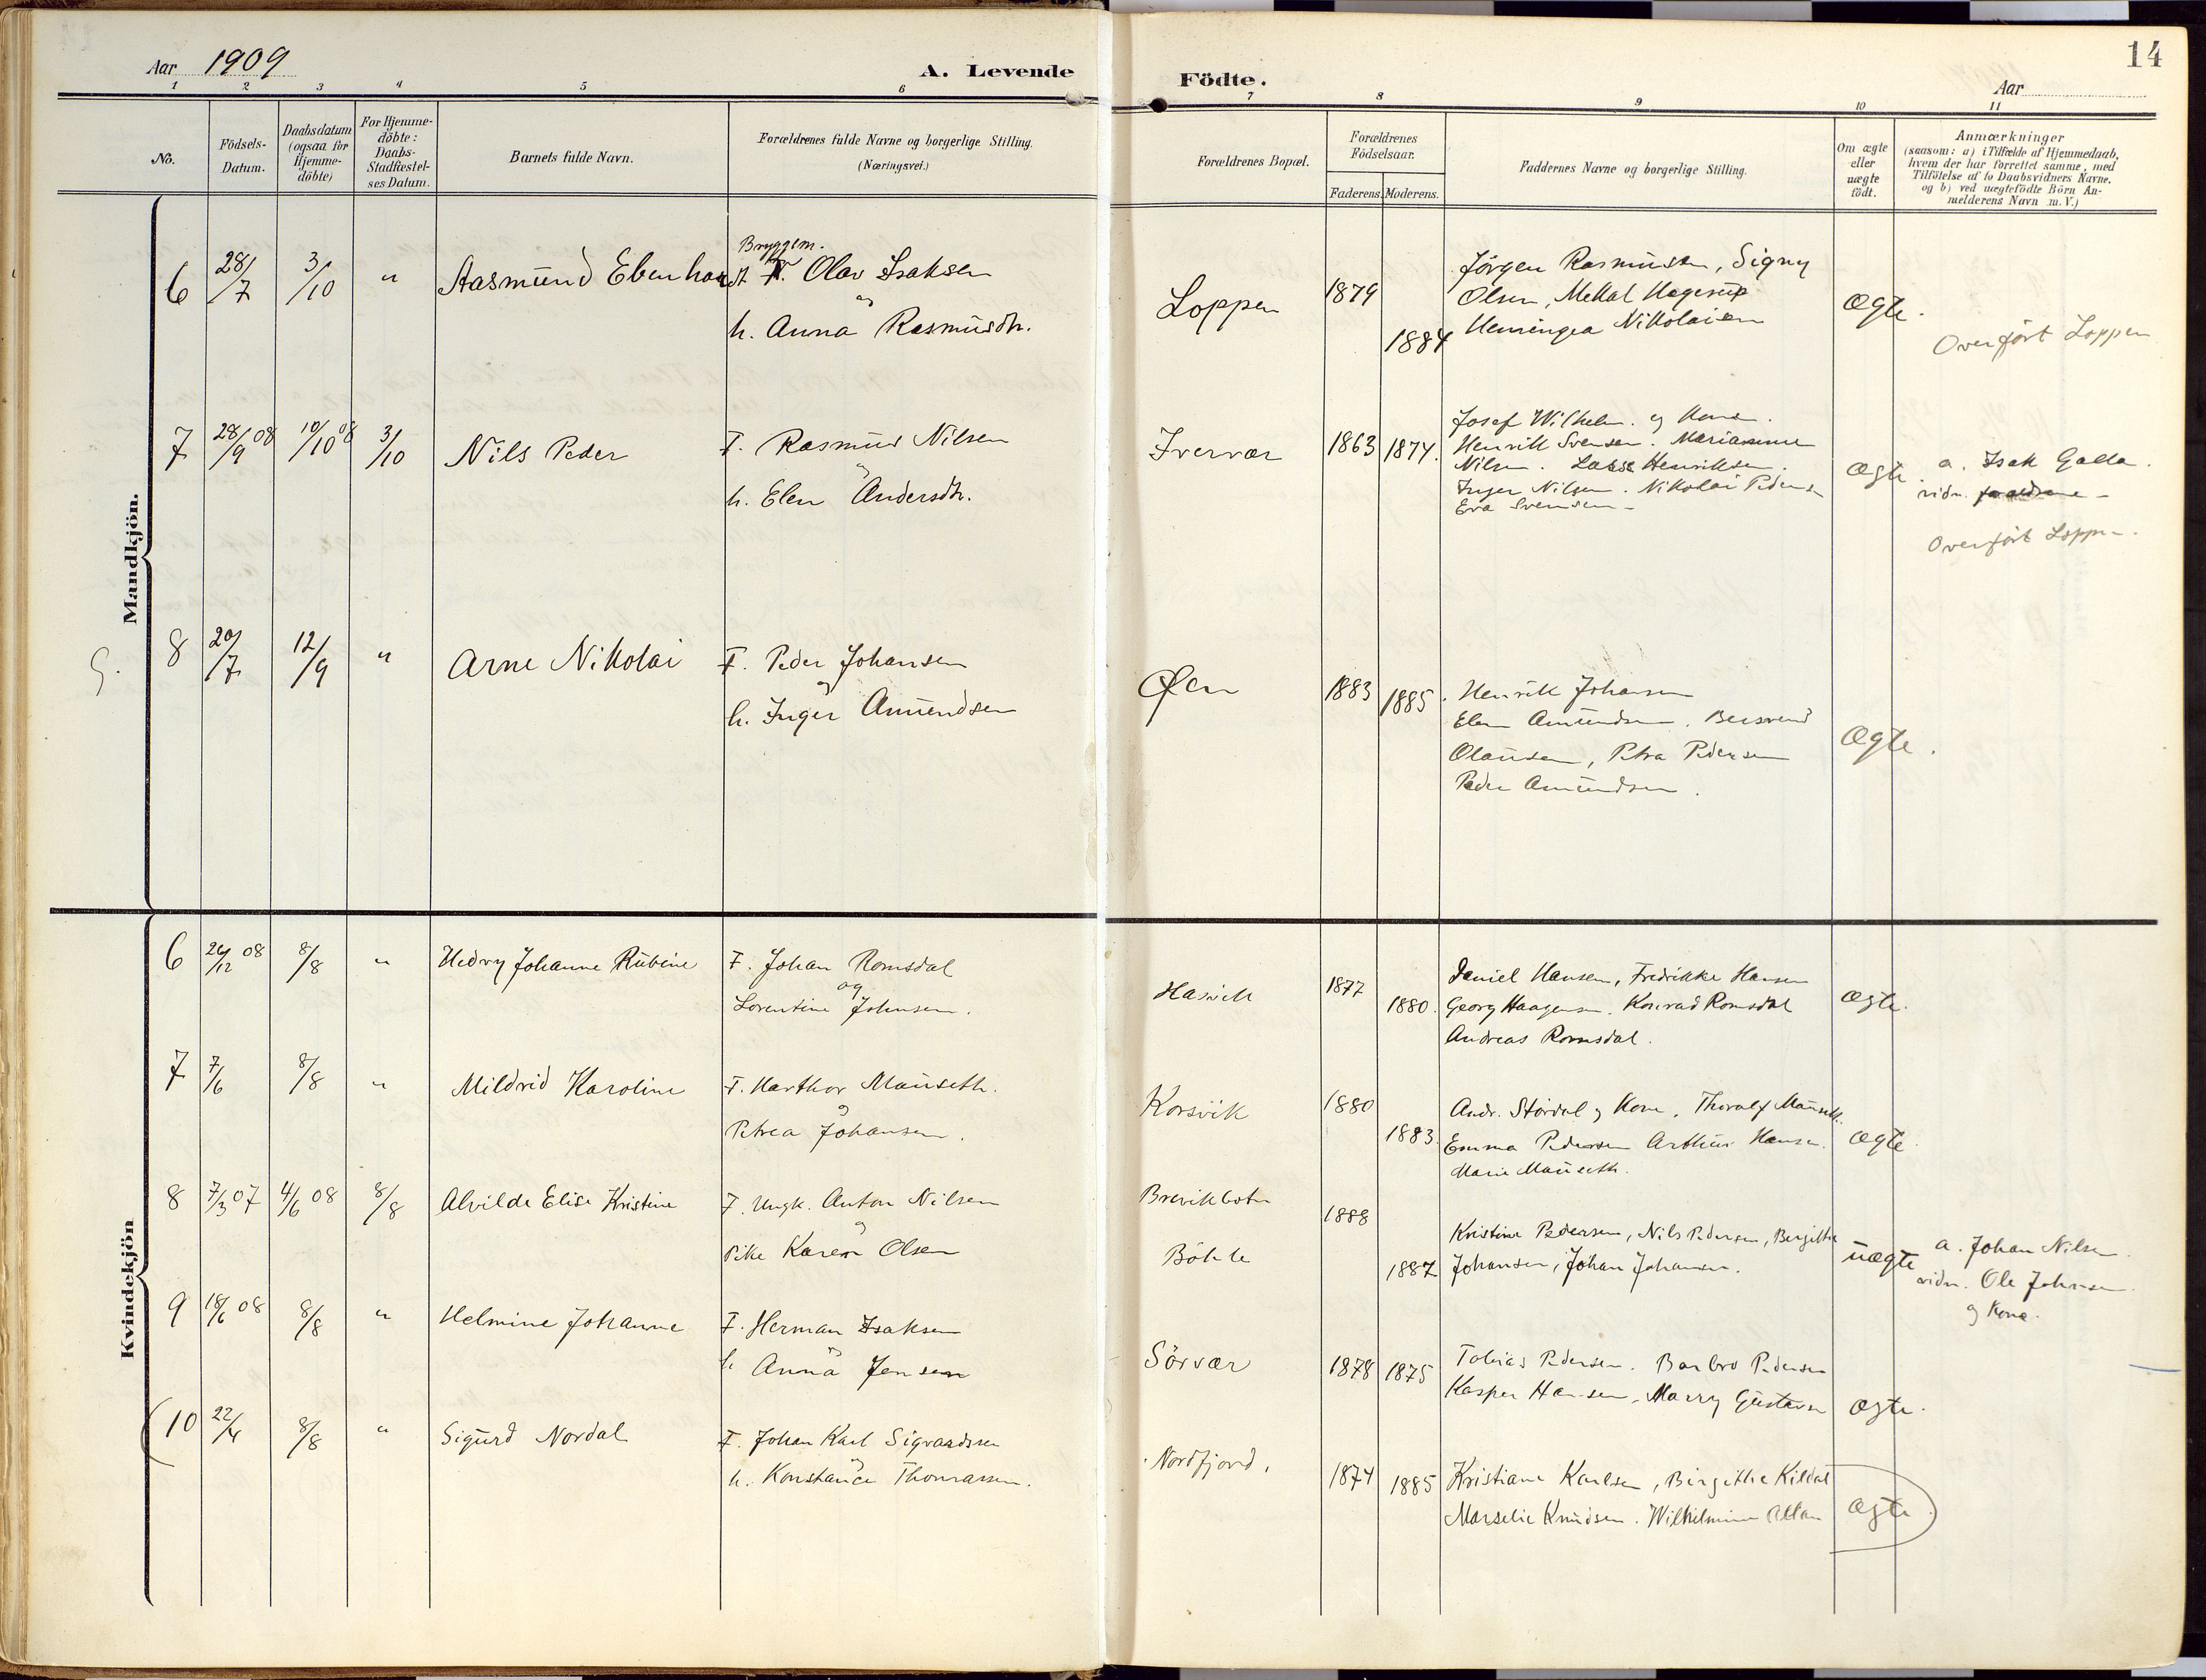 Aar 1909
A. Levende
Födte.
Aar
14
1 2 3 4 5 6 7 8 9 10 11
No.
Födsels-Datum.
Daabsdatum (ogsaa for Hjemme-döbte)
For Hjemme-döbte: Daabs-Stadfæstel-ses Datum.
Barnets fulde Navn.
Forældrenes fulde Navne og borgerlige Stilling.
(Næringsvei.)
Forældrenes Bopæl.
Forældrenes Födselsaar.
Faderens. Moderens.
Faddernes Navne og borgerlige Stilling.
Om ægte eller uægte födt.
Anmærkninger
(saasom: a) i Tilfælde af Hjemmedaab,
hvem der har forrettet samme, med
Tilföielse af to Daabsvidners Navne,
og b) ved uægtefödte Börn An-
melderens Navn m.V.)
Mandkjön.
6 28/7 3/10 " Aasmund Ebenhardt
Bryggem.
Olav Isaksen
og
h. Anna Rasmusdtr.
Loppen 1879 1884
Jörgen Rasmussen, Signy
Olsen, Mekal Hagerup
Henningea Nikolaisen
Ægte.
Overfört Loppen
7 28/9 08 10/10 08 3/10 Nils Peder
F. Rasmus Nilsen
og
h. Elen Andersdtr.
Ivervær 1863 1874.
Josef Wilhelm. og Kone.
Henrik Svensen. Marianne
Nilsen. Lasse Henriksen.
Inger Nilsen. Nikolai Pedersen
Eva Svensen
Ægte.
a. Isak Galla.
vidn. forældrene
Overfört Loppen.
G. 8 20/7 12/9 " Arne Nikolai
F. Peder Johansen
og
h. Inger Amundsen
Øen 1883 1885.
Henrik Johansen
Elen Amundsen. Bersvend
Olausen, Petra Pedersen
Peder Amundsen.
Ægte.
Kvindekjön
6 26/12 08 8/8 " Hedvy Johanne Rubine
F. Johan Romsdal
og
Lorentine Johnsen.
Hasvik 1877 1880.
Daniel Hansen, Fredrikke Hansen
Georg Haagensen. Konrad Romsdal
Andreas Romsdal.
Ægte.
7 7/6 8/8 " Mildrid Karoline
F. Harthor Mauseth.
og
Petrea Johansen.
Korsvik 1880 1883.
Andr. Stördal og Kone, Thoralf Mauseth.
Emma Pedersen Arthur Hansen.
Marie Mauseth.
Ægte
8 7/3 07 4/6 08 8/8 Alvilde Elise Kristine
F. Ungk. Anton Nilsen
og
Pike Karen Olsen
Brevikbotn
Böhle
1888 1887
Kristine Pedersen, Nils Pedersen, Bergitte
Johansen, Johan Johansen.
uægte
a. Johan Nilsen.
vidn. Ole Johnsen
og Kone.
9 18/6 08 8/8 " Helmine Johanne
F. Herman Isaksen
og
h. Anna Jensen
Sörvær 1878 1875
Tobias Pedersen. Barbro Pedersen
Kasper Hansen, Marry Gustavsen
Ægte.
10 22/4 8/8 " Sigurd Nordal
F. Johan Karl Sigvardsen
og
h. Konstance Thomassen.
Nordfjord. 1874 1885
Kristiane Karlsen, Birgithe Kildal
Marselie Knudsen. Wilhelmine
Ægte.